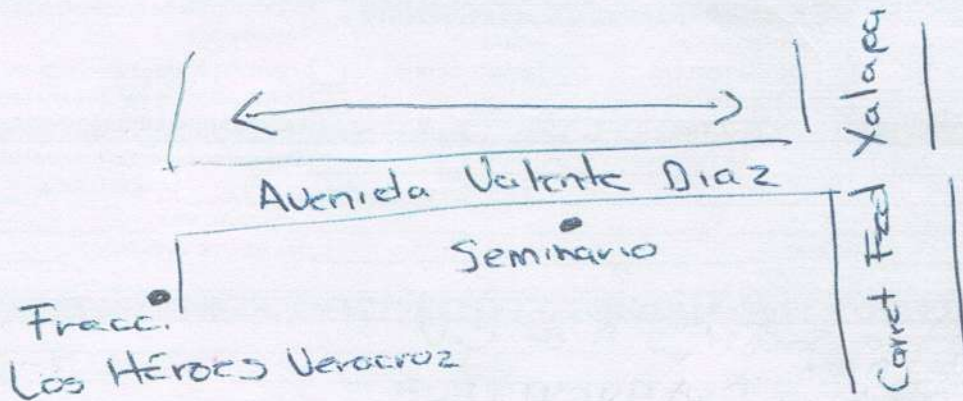 Avenida Valente Diaz
Seminario
Fracc.
Los Héroes Veracruz
Carret Fed Xalapa